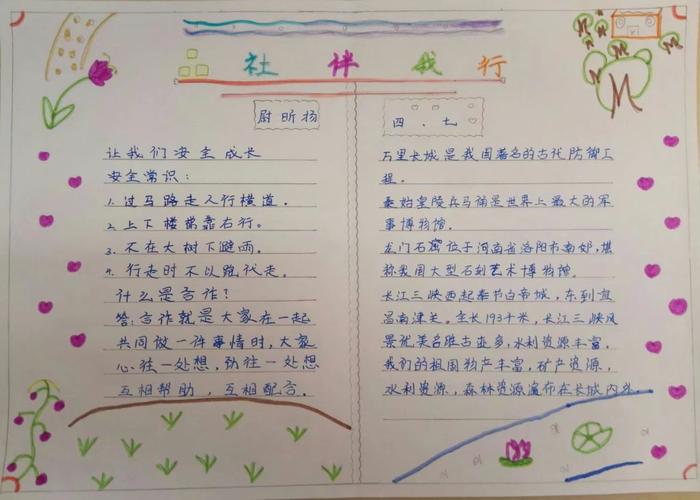 品社伴我行
尉昕扬
让我们安全成长
安全常识：
1. 过马路走人行横道。
2. 上下楼梯靠右行。
3. 不在大树下避雨。
4. 行走时不以跑代走。
什么是合作？
答：合作就是大家在一起
共同做一件事情时，大家
心往一处想，劲往一处想
互相帮助，互相配合。
四．七
万里长城是我国著名的古代防御工
程。
秦始皇陵兵马俑是世界上最大的军
事博物馆。
龙门石窟位于河南省洛阳市南郊，堪
称我国大型石刻艺术博物馆。
长江三峡西起奉节白帝城，东到宜
昌南津关。全长193千米，长江三峡风
景优美名胜古迹多，水利资源丰富。
我们的祖国物产丰富，矿产资源，
水利资源，森林资源遍布在长城内外。